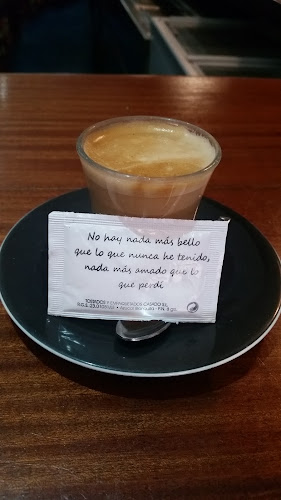 No hay nada más bello
que lo que nunca he tenido,
nada más amado que lo
que perdí
TOSTADOS Y EMPAQUETADOS CASADO S.L.